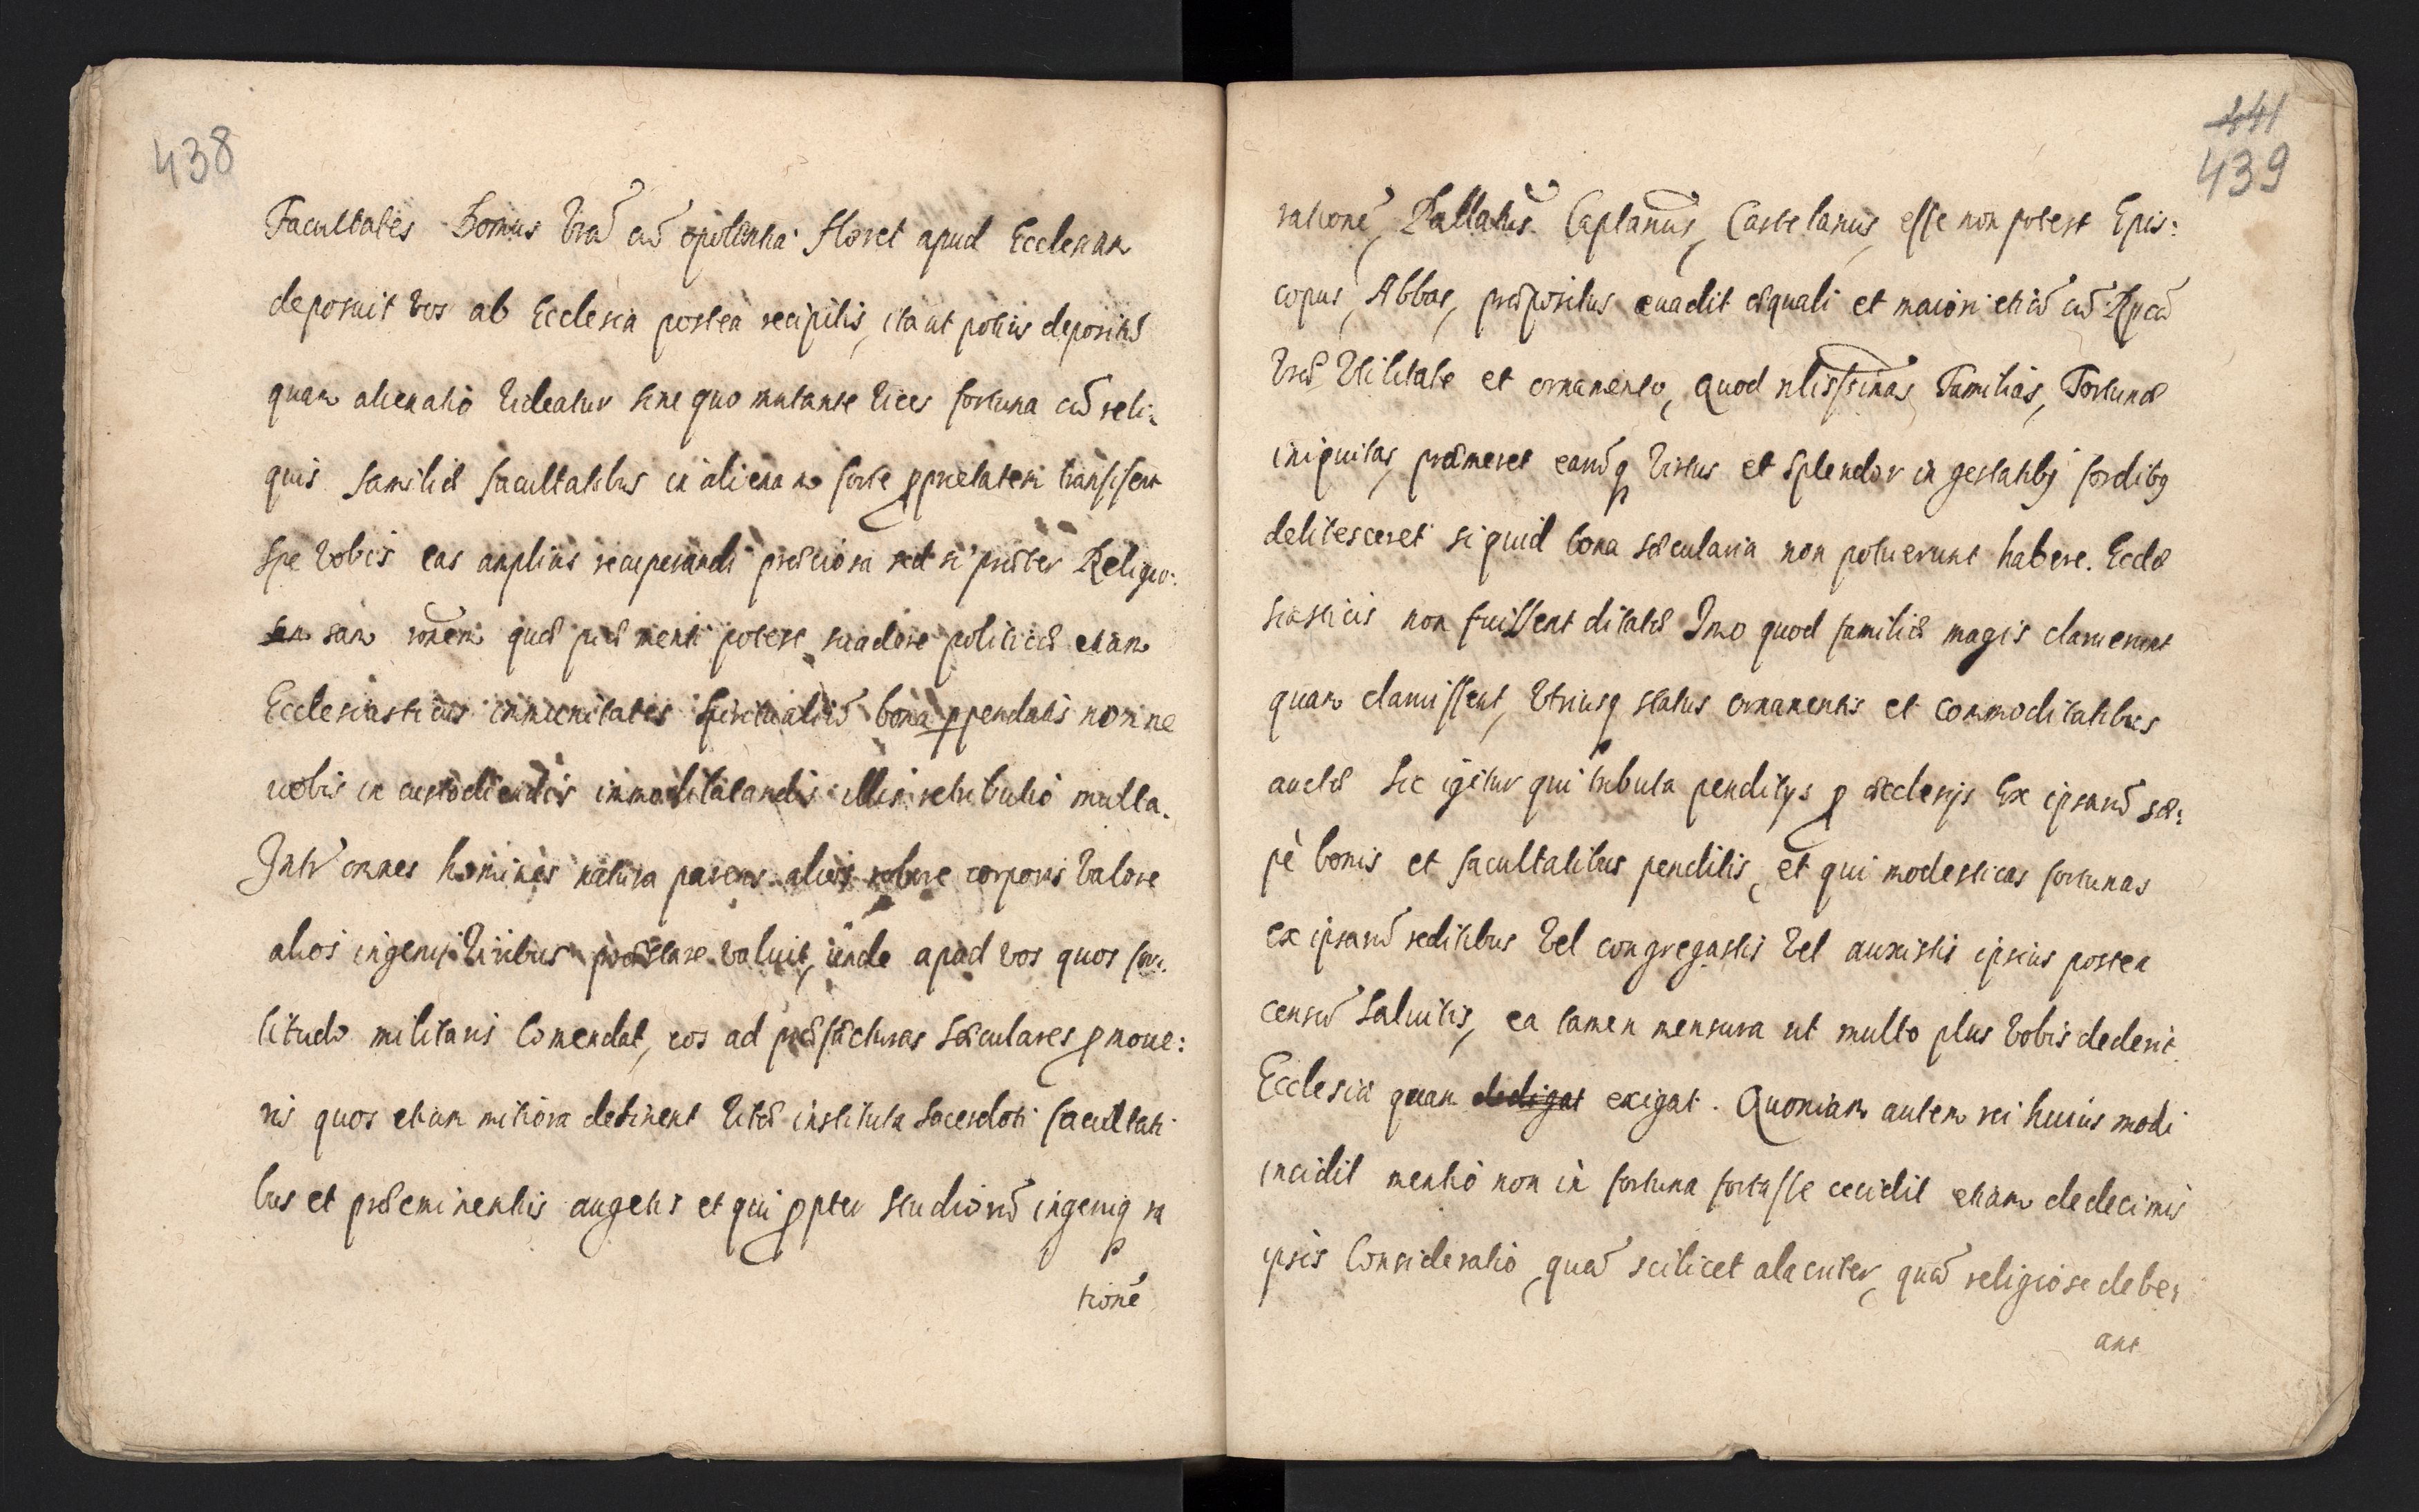 438
Facultates Domus vrã cũ opulentia floret apud Ecclesiam
deposuit vos ab Ecclesia postea recipitis, ita ut potius depositũ
quam alienatio videatur sine quo mutante vices fortuna cũ reli:
quis familiæ facultatibus in alienam forte ꝓprietatem transisent
spe vobis eas amplius recuperandi præcisa sed si præter Religio:
sam rõnem quæ piæ menti potest suadere politicæ etiam
Ecclesiasticas immunitates spiritualiũ bona ꝑpendatis nonne
uobis in custodiendis illis retributio multa.
Intr omnes homines natura parens alios robore corporis valore
alios ingenij viribus præstare voluit, unde apud vos quos for:
titudo militaris Comendat, eos ad præfecturas sæculares ꝓmoue:
tis quos etiam mitiora detinent vitæ instituta sacerdoti facultati
bus et præeminentiis augetis et qui ꝓpter studiorũ ingenijq ra
tionẽ
441
439
rationẽ, Pallatinũs Caplanus, Castelanus, esse non potest Epis:
copus, Abbas, præpositus euadit æquali et maiori etiã cũ Rpcæ
vræ Vtilitate et ornamento, quod nlissimas Familias, Fortunæ
iniquitas, præmeret earũq virtus et splendor in gestatibꝫ sordibꝫ
delitesceret si quid bona sæcularia non potuerunt habere. Eccle
siasticis non fuissent ditatæ Imo quod familiæ magis claruerunt
quam claruissent, Vtriusq status ornamentis et commoditatibus
auctæ Sic igitur qui tributa penditys ꝓ æcclesijs Ex ipsarũ sæ:
pè bonis et facultatibus penditis, et qui modesticas fortunas
ex ipsarũ reditibus vel congregastis vel auxistis ipsius postea
censũ Saluitis, ea tamen mensura ut multo plus vobis dederit
Ecclesia quam exigat. Quoniam autem rei huius modi
incidit mentio non in fortuna fortasse cecidit etiam de decimis
ipsis Consideratio, quã scilicet alacriter, quã religiose debe:
ant